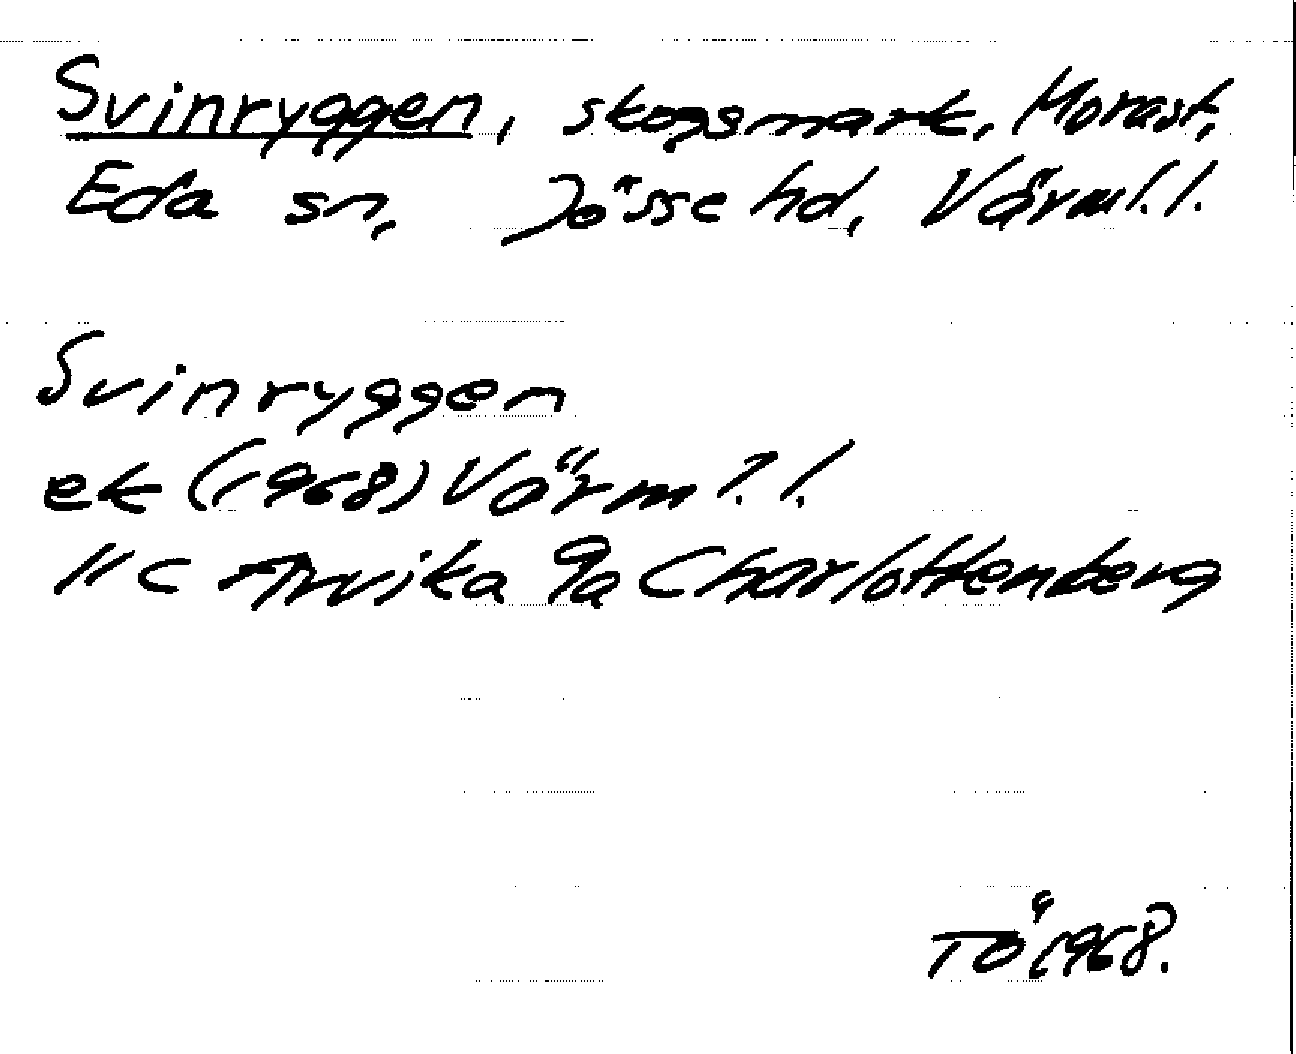 Svinryggen, skogsmark, Morast,
Eda sn, Jösse hd, Värml. l.
Svinryggen
ek (1968) Värml. l.
11 C Arvika 9a Charlottenberg
TÖ 1968.